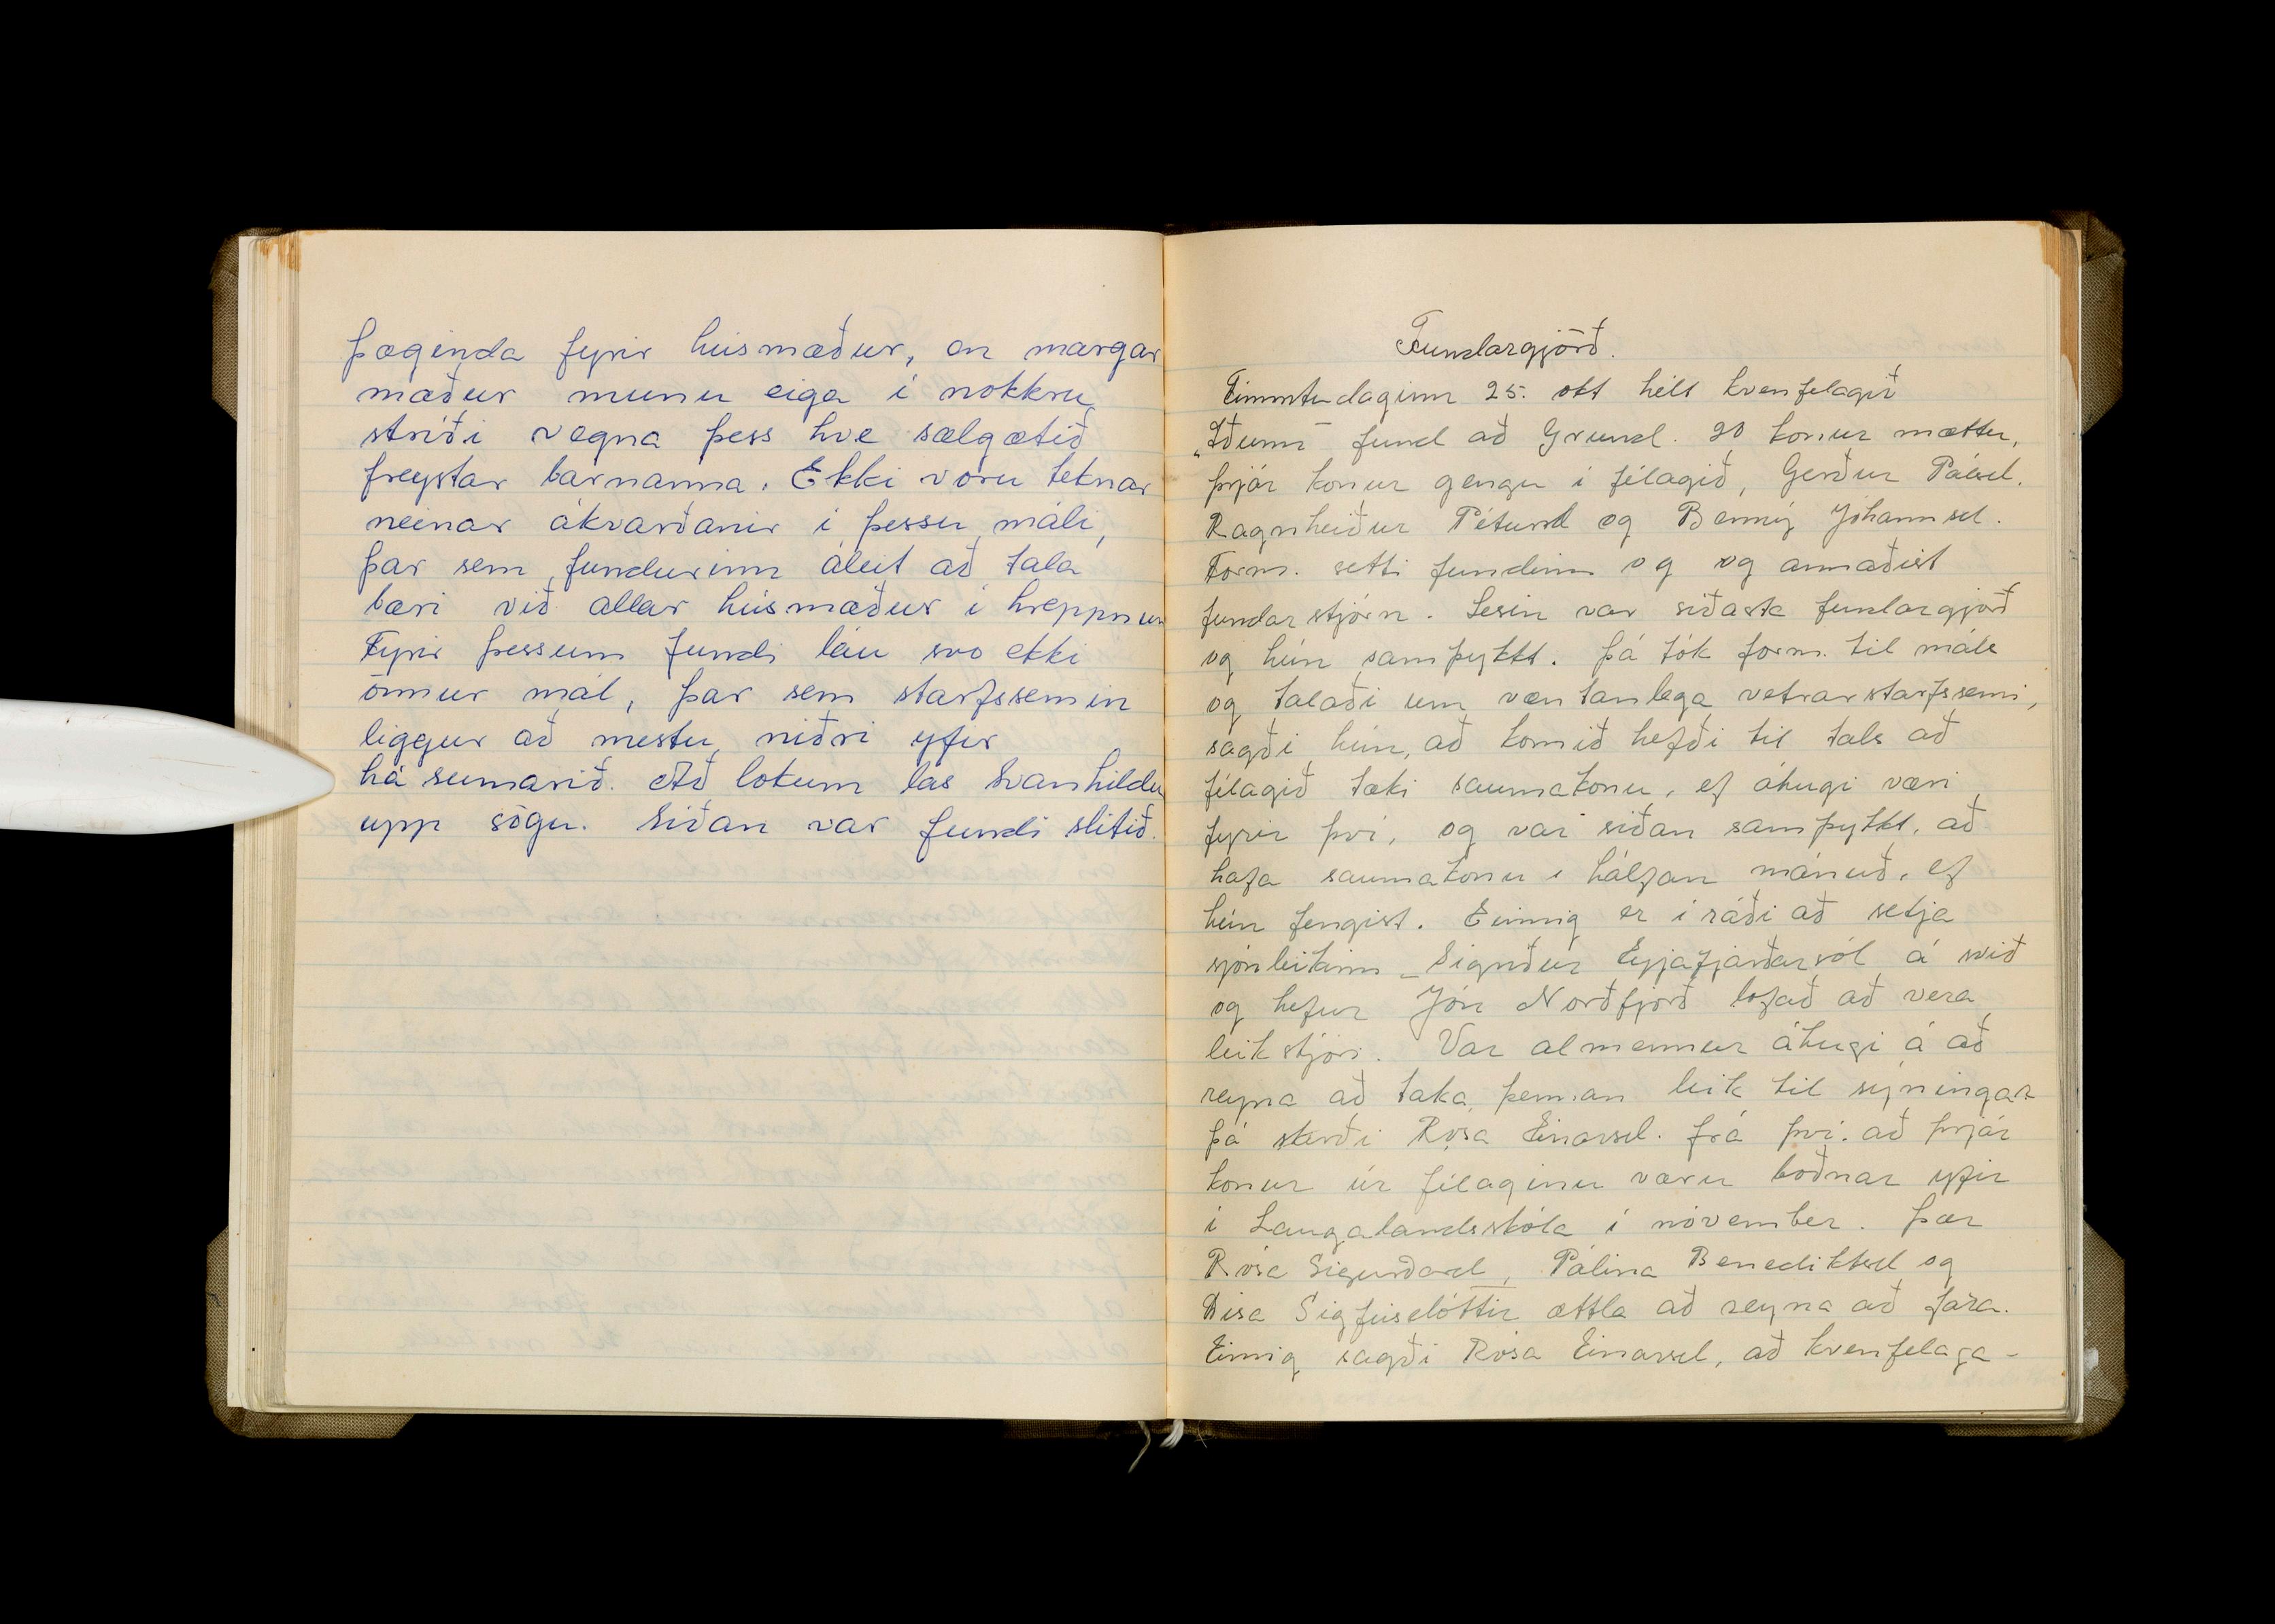 þæginda fyrir húsmæður, en margar
mæður munu eiga í nokkru
stríði vegna þess hve sælgætið
freystar barnanna. Ekki voru teknar
neinar ákvarðanir í þessu máli,
þar sem fundurinn áleit að tala
bæri við allar húsmæður í hreppnum
Fyrir þessum fundi láu svo ekki
önnur mál, þar sem starfssemin
liggur að mestu niðri yfir
há sumarið. Að lokum las Svanhildur
upp sögu. Síðan var fundi slitið.
Fundargjörð.
Fimmtudaginn 25. okt hélt kvenfelagið
„Iðunn" fund að Grund. 20 konur mættu,
þrjár konur gengu í félagið, Gerður Pálsd.
Ragnheiður Pétursd og Benný Jóhannsd.
Form. setti fundinn og og annaðist
fundarstjórn. Lesin var síðasta fundargjörð
og hún samþykkt. Þá tók form. til máls
og talaði um væntanlega vetrarstarfssemi,
sagði hún, að komið hefði til tals að
félagið tæki saumakonu, ef áhugi væri
fyrir því, og var síðan samþykkt, að
hafa saumakonu í hálfan mánuð, ef
hún fengist. Einnig er í ráði að setja
sjónleikinn _ Sigríður Eyjafjarðarsól á svið
og hefur Jón Norðfjörð lofað að vera
leikstjóri. Var almennur áhugi á að
reyna að taka þennan leik til sýningar
þá skírði Rósa Einarsd. frá því. að þrjár
konur úr félaginu væru boðnar yfir
í Laugalandsskóla í nóvember. Þær
Rósa Sigurðard, Pálína Benediktsd og
Dísa Sigfúsdóttir ættla að reyna að fara.
Einnig sagði Rósa Einarsd, að kvenfelaga-